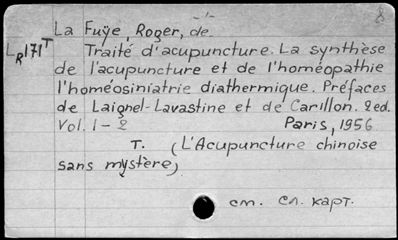 -1-
8
La Fuÿe, Roger, de
LR171T
Traité d'acupuncture. La synthèse
de l'acupuncture et de l'homéopathie
l'homéosiniatrie diathermique. Préfaces
de Laignel-Lavastine et de Carillon. 2ed.
Vol. 1-2 Paris, 1956
T. (L'Acupuncture chinoise
sans mystère)
см. сл. карт.